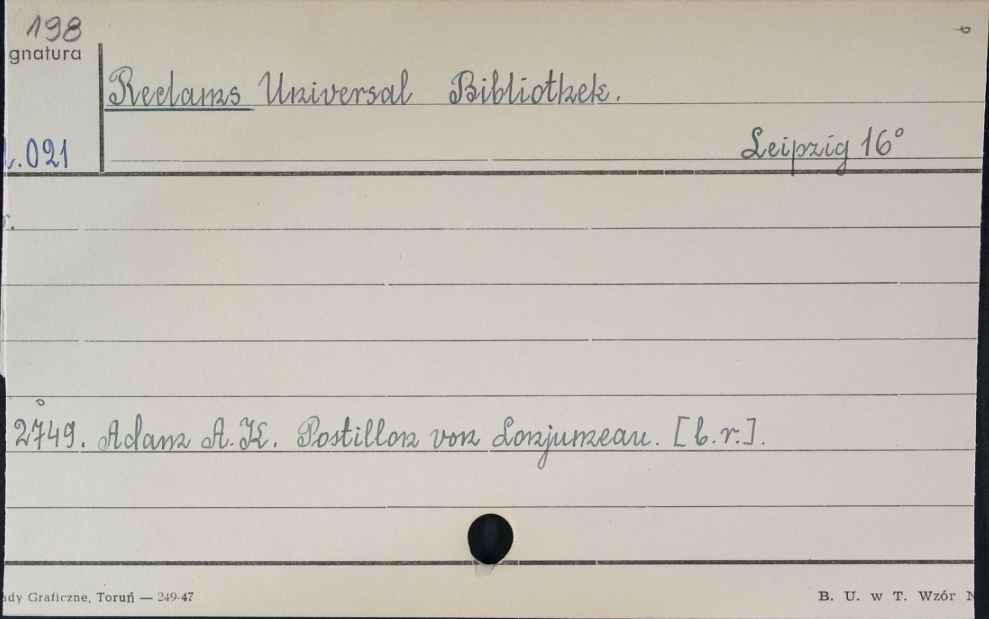 198
gnatura
Reclams Universal Bibliothek.
Leipzig 16°
.021
r.
2749. Adam A. K. Postillon von Lonjumeau. [b.r.].
ady Graficzne, Toruń — 249-47
B. U. w T. Wzór N